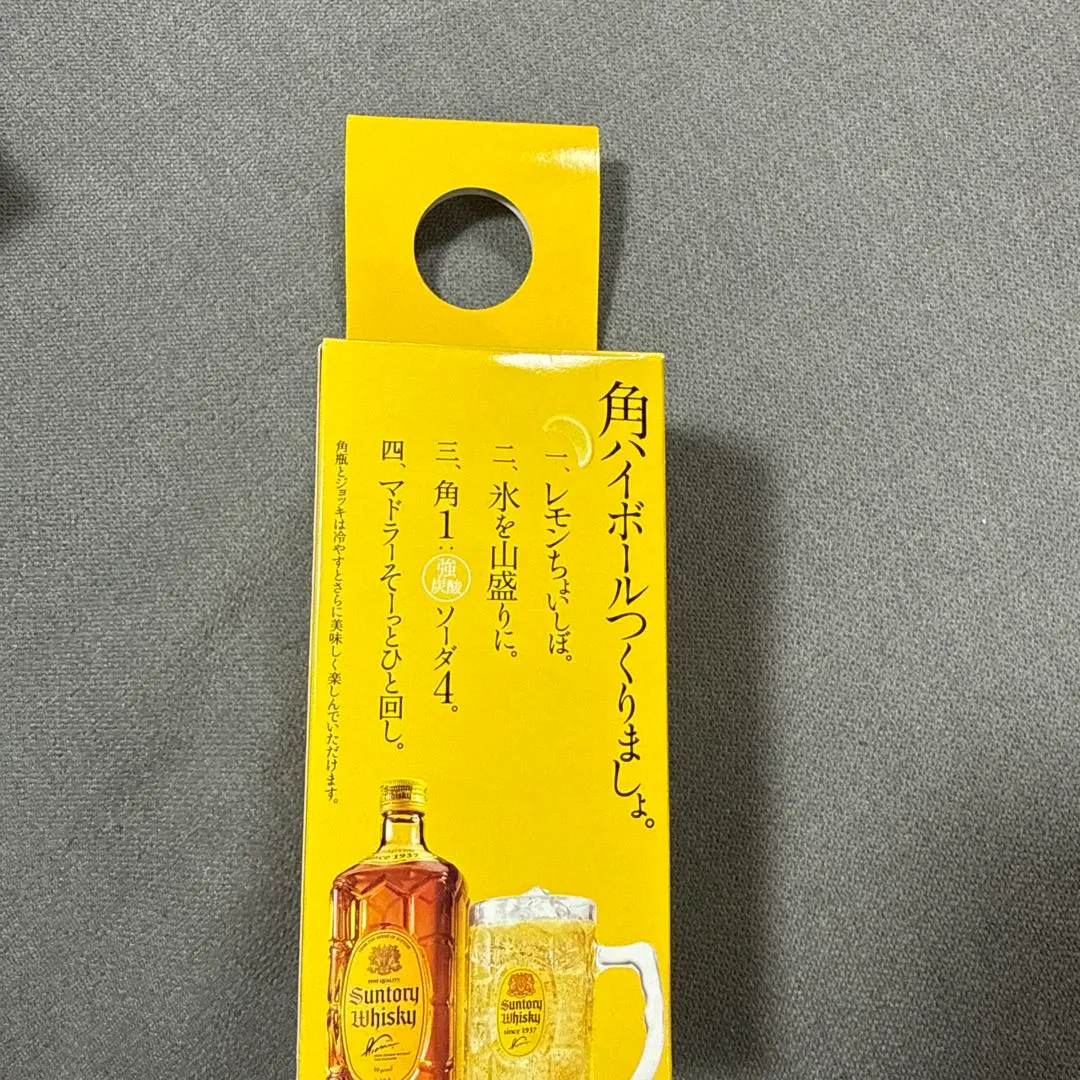 角ハイボールつくりましょ。
一、レモンちょいしぼ。
二、氷を山盛りに。
三、角1:強炭酸ソーダ4。
四、マドラーそーっとひと回し。
角瓶とジョッキは冷やすとさらに美味しく楽しんでいただけます。
Suntory
Whisky
since 1937
FINE QUALITY
Suntory
Whisky
Suntory
Whisky
since 1937